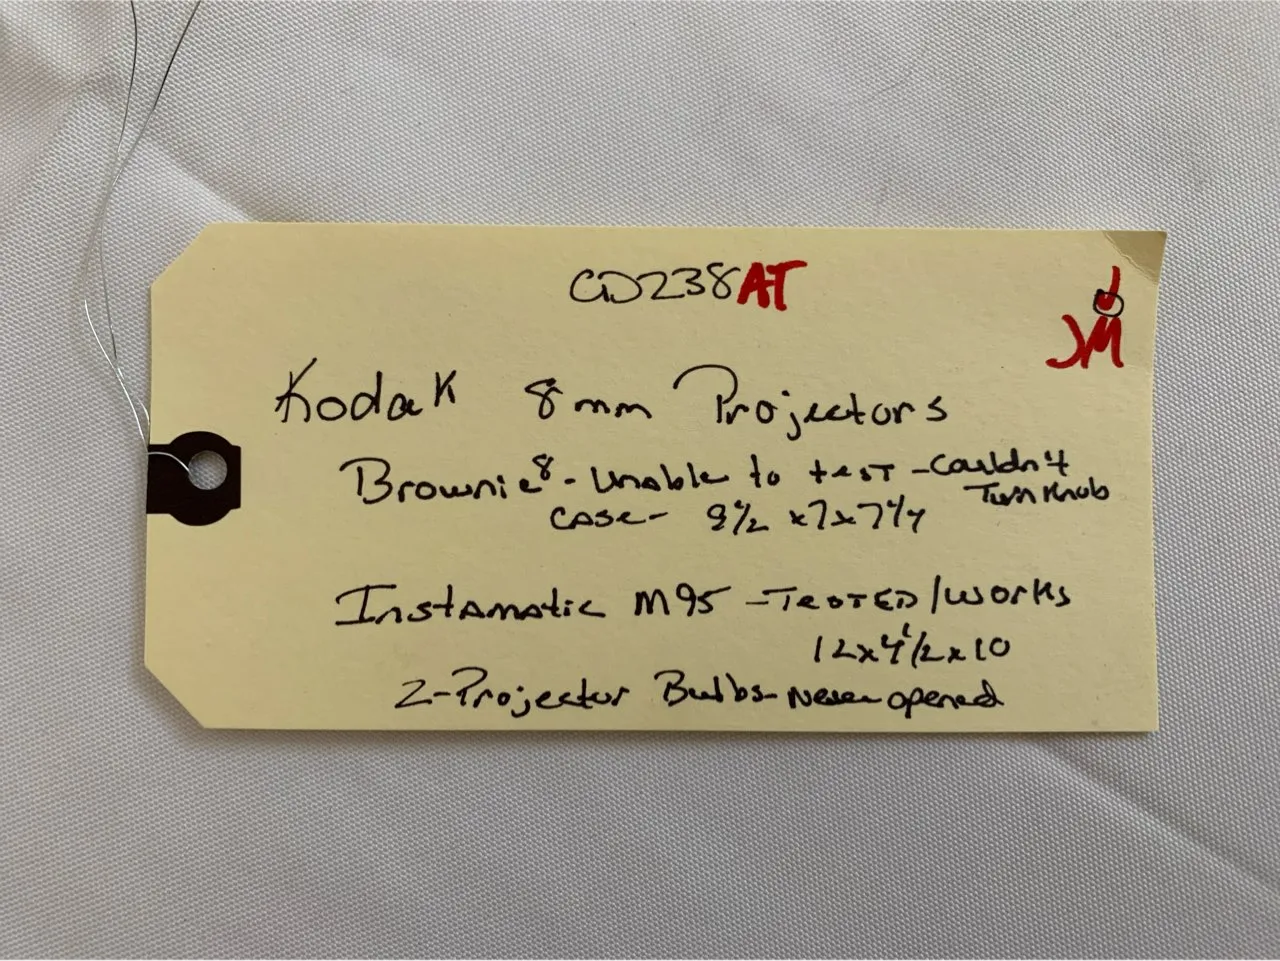 GD238AT
JM
Kodak 8mm Projectors
Brownie 8 - Unable to test - Couldn't
Turn Knob
case - 9½ x7x7¼
Instamatic M95 - Tested/works
12x4½x10
2-Projector Bulbs - Never opened